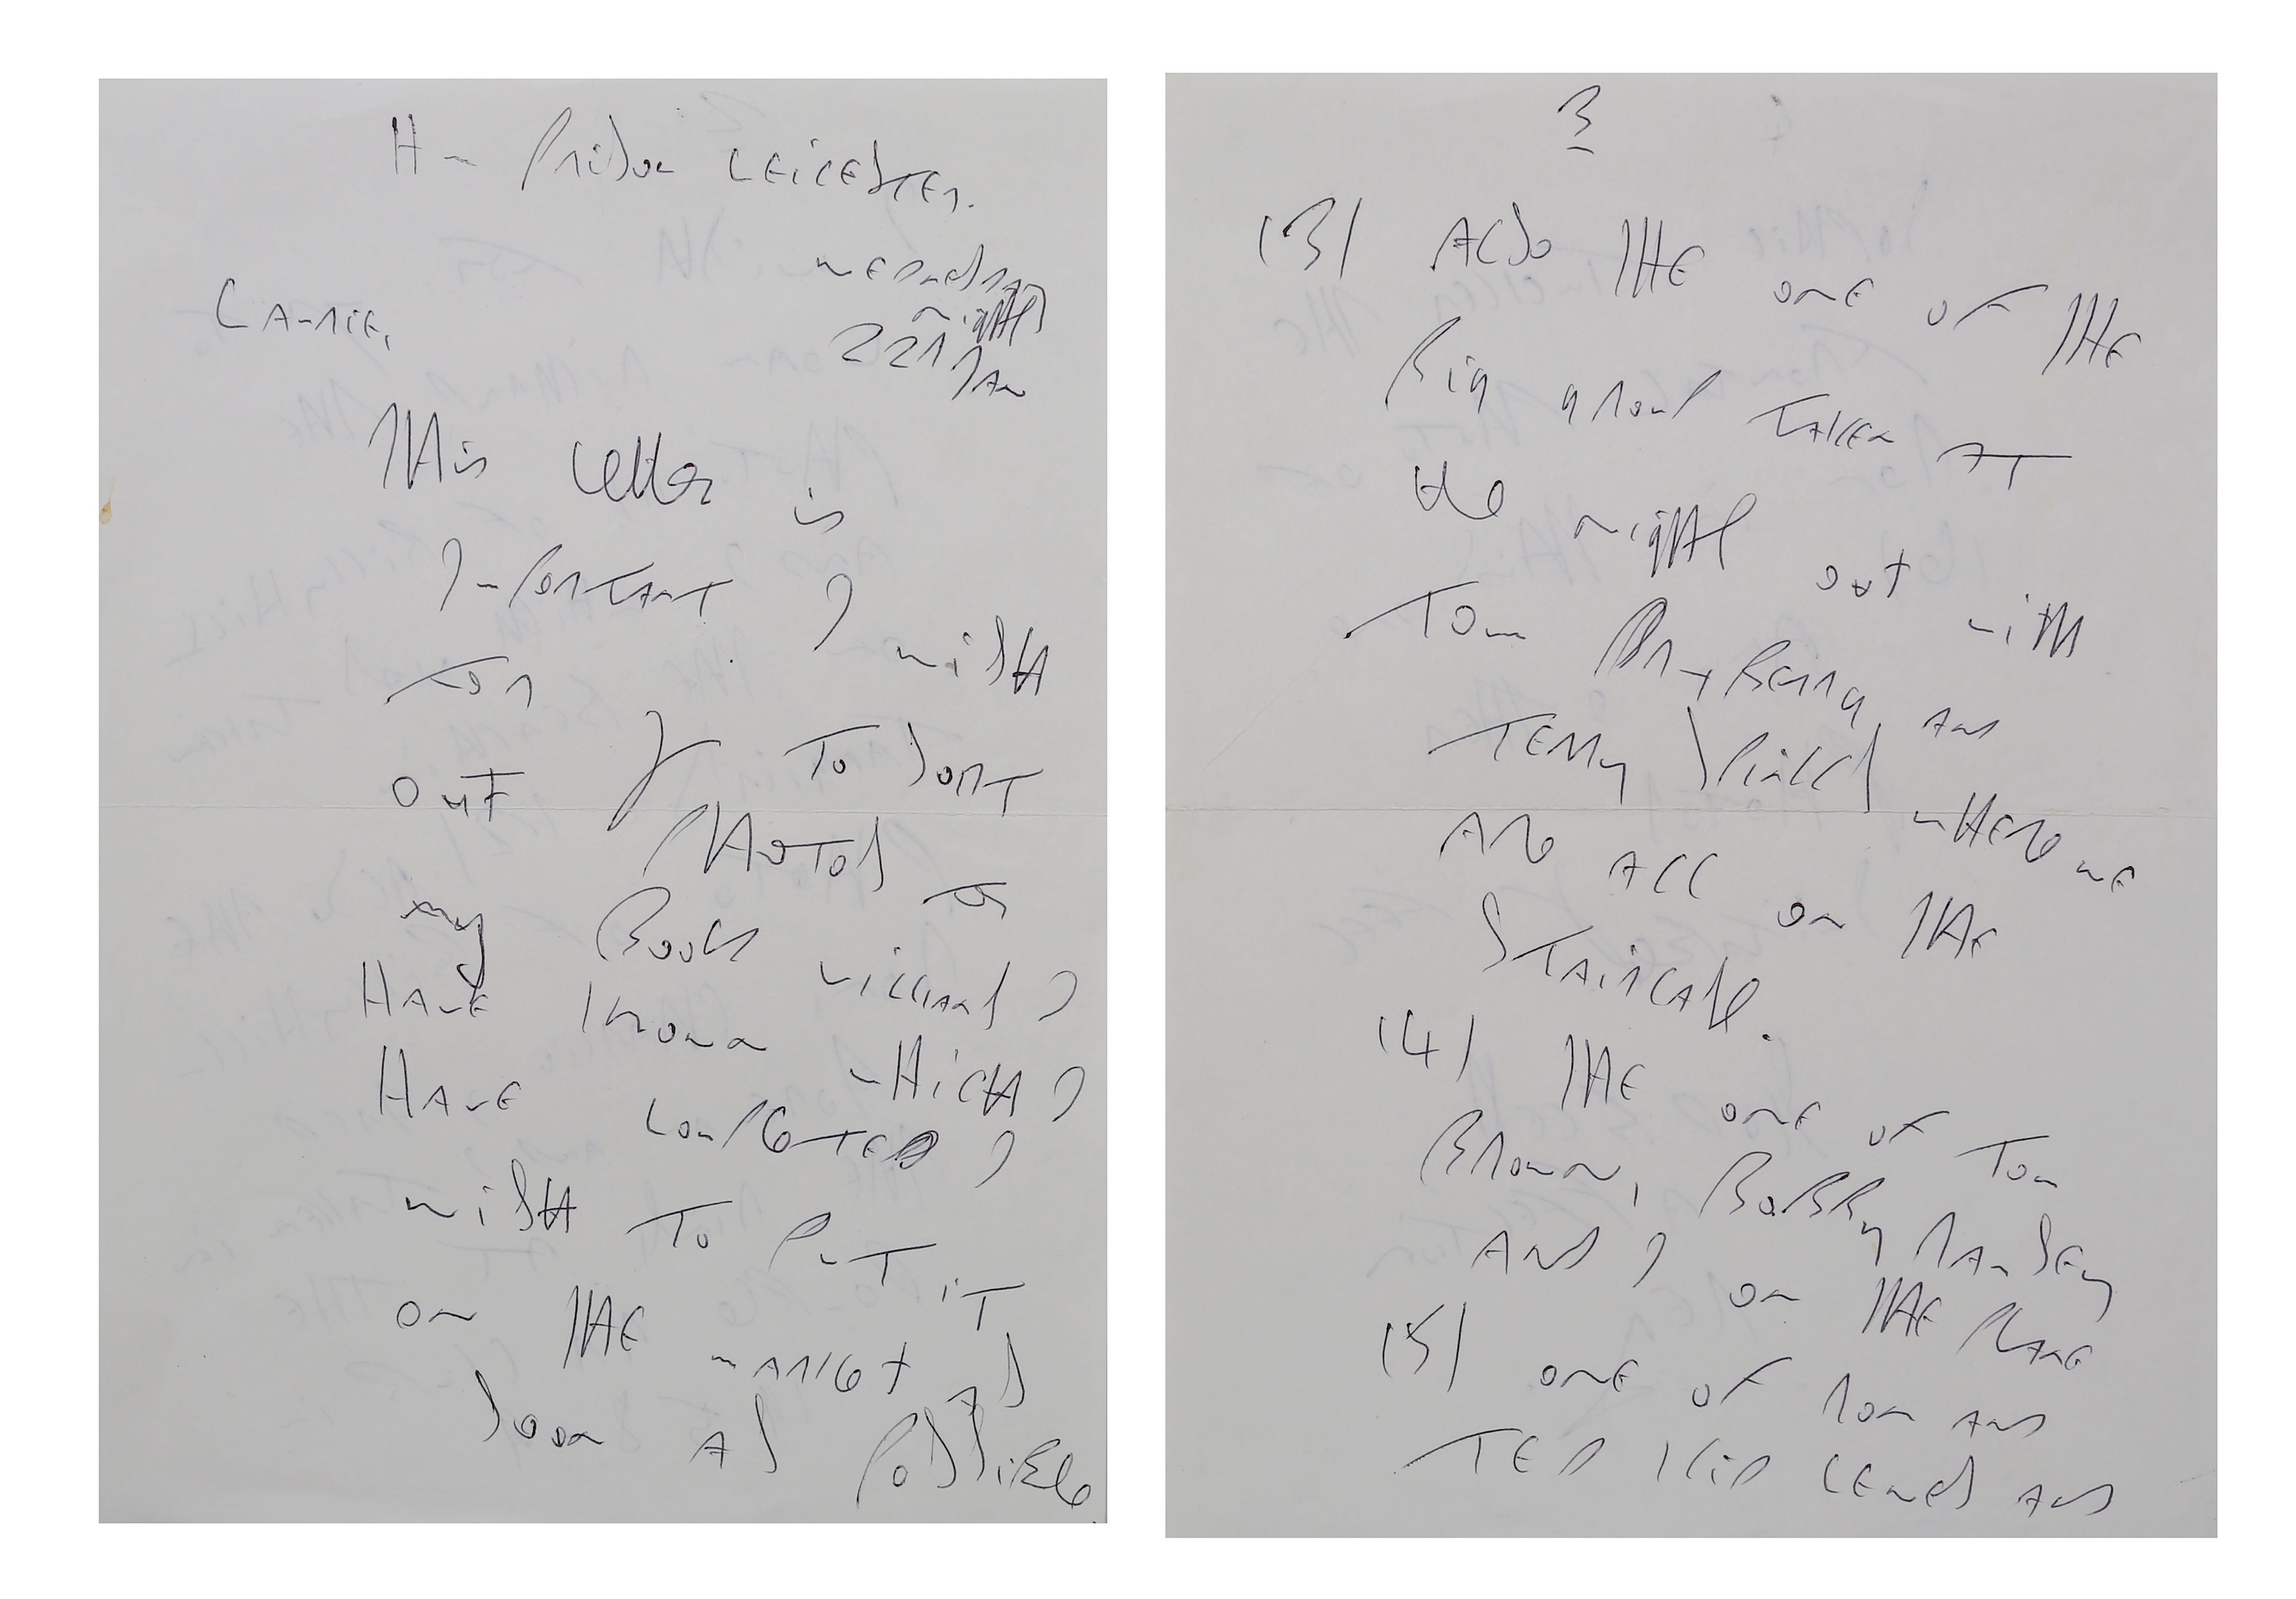 H M Prison LEiCESTER.
WEDNESDAY
night
22ND JAN
LAURIE,
THis letter is
IMPORTANT I wiSH
FOR
OUT TO SORT
PHOTOS FOR
my BOOK ViLLiANS I
HAVE KNOWN WHiCH I
HAVE COMPLETED I
wiSH TO PUT iT
ON THE MARKET AS
SOON AS POSSiBLE
3
(3) ALSO THE ONE OF THE
Big gROUP TAKEN AT
the nigHt out wiTH
TOM
TERRy SPiNKS WHERE WE
ARE ALL ON THE
STAiRCASE.
(4) THE ONE OF TOM
BROWN, BOBBy RAMSEy
AND I ON THE PLANE
(5) ONE OF RON AND
TED KiD LEWiS AND